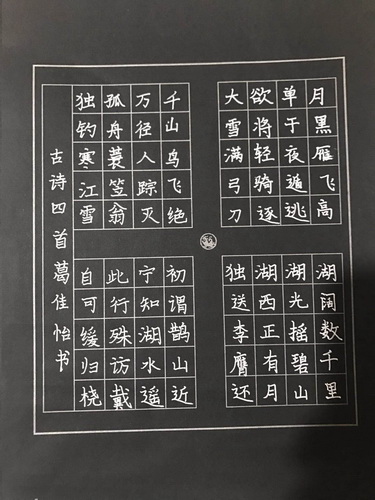 月黑雁飞高
单于夜遁逃
欲将轻骑逐
大雪满弓刀
千山鸟飞绝
万径人踪灭
孤舟蓑笠翁
独钓寒江雪
湖阔数千里
湖光摇碧山
湖西正有月
独送李膺还
初谓鹊山近
宁知湖水遥
此行殊访戴
自可缓归桡
古诗四首葛佳怡书